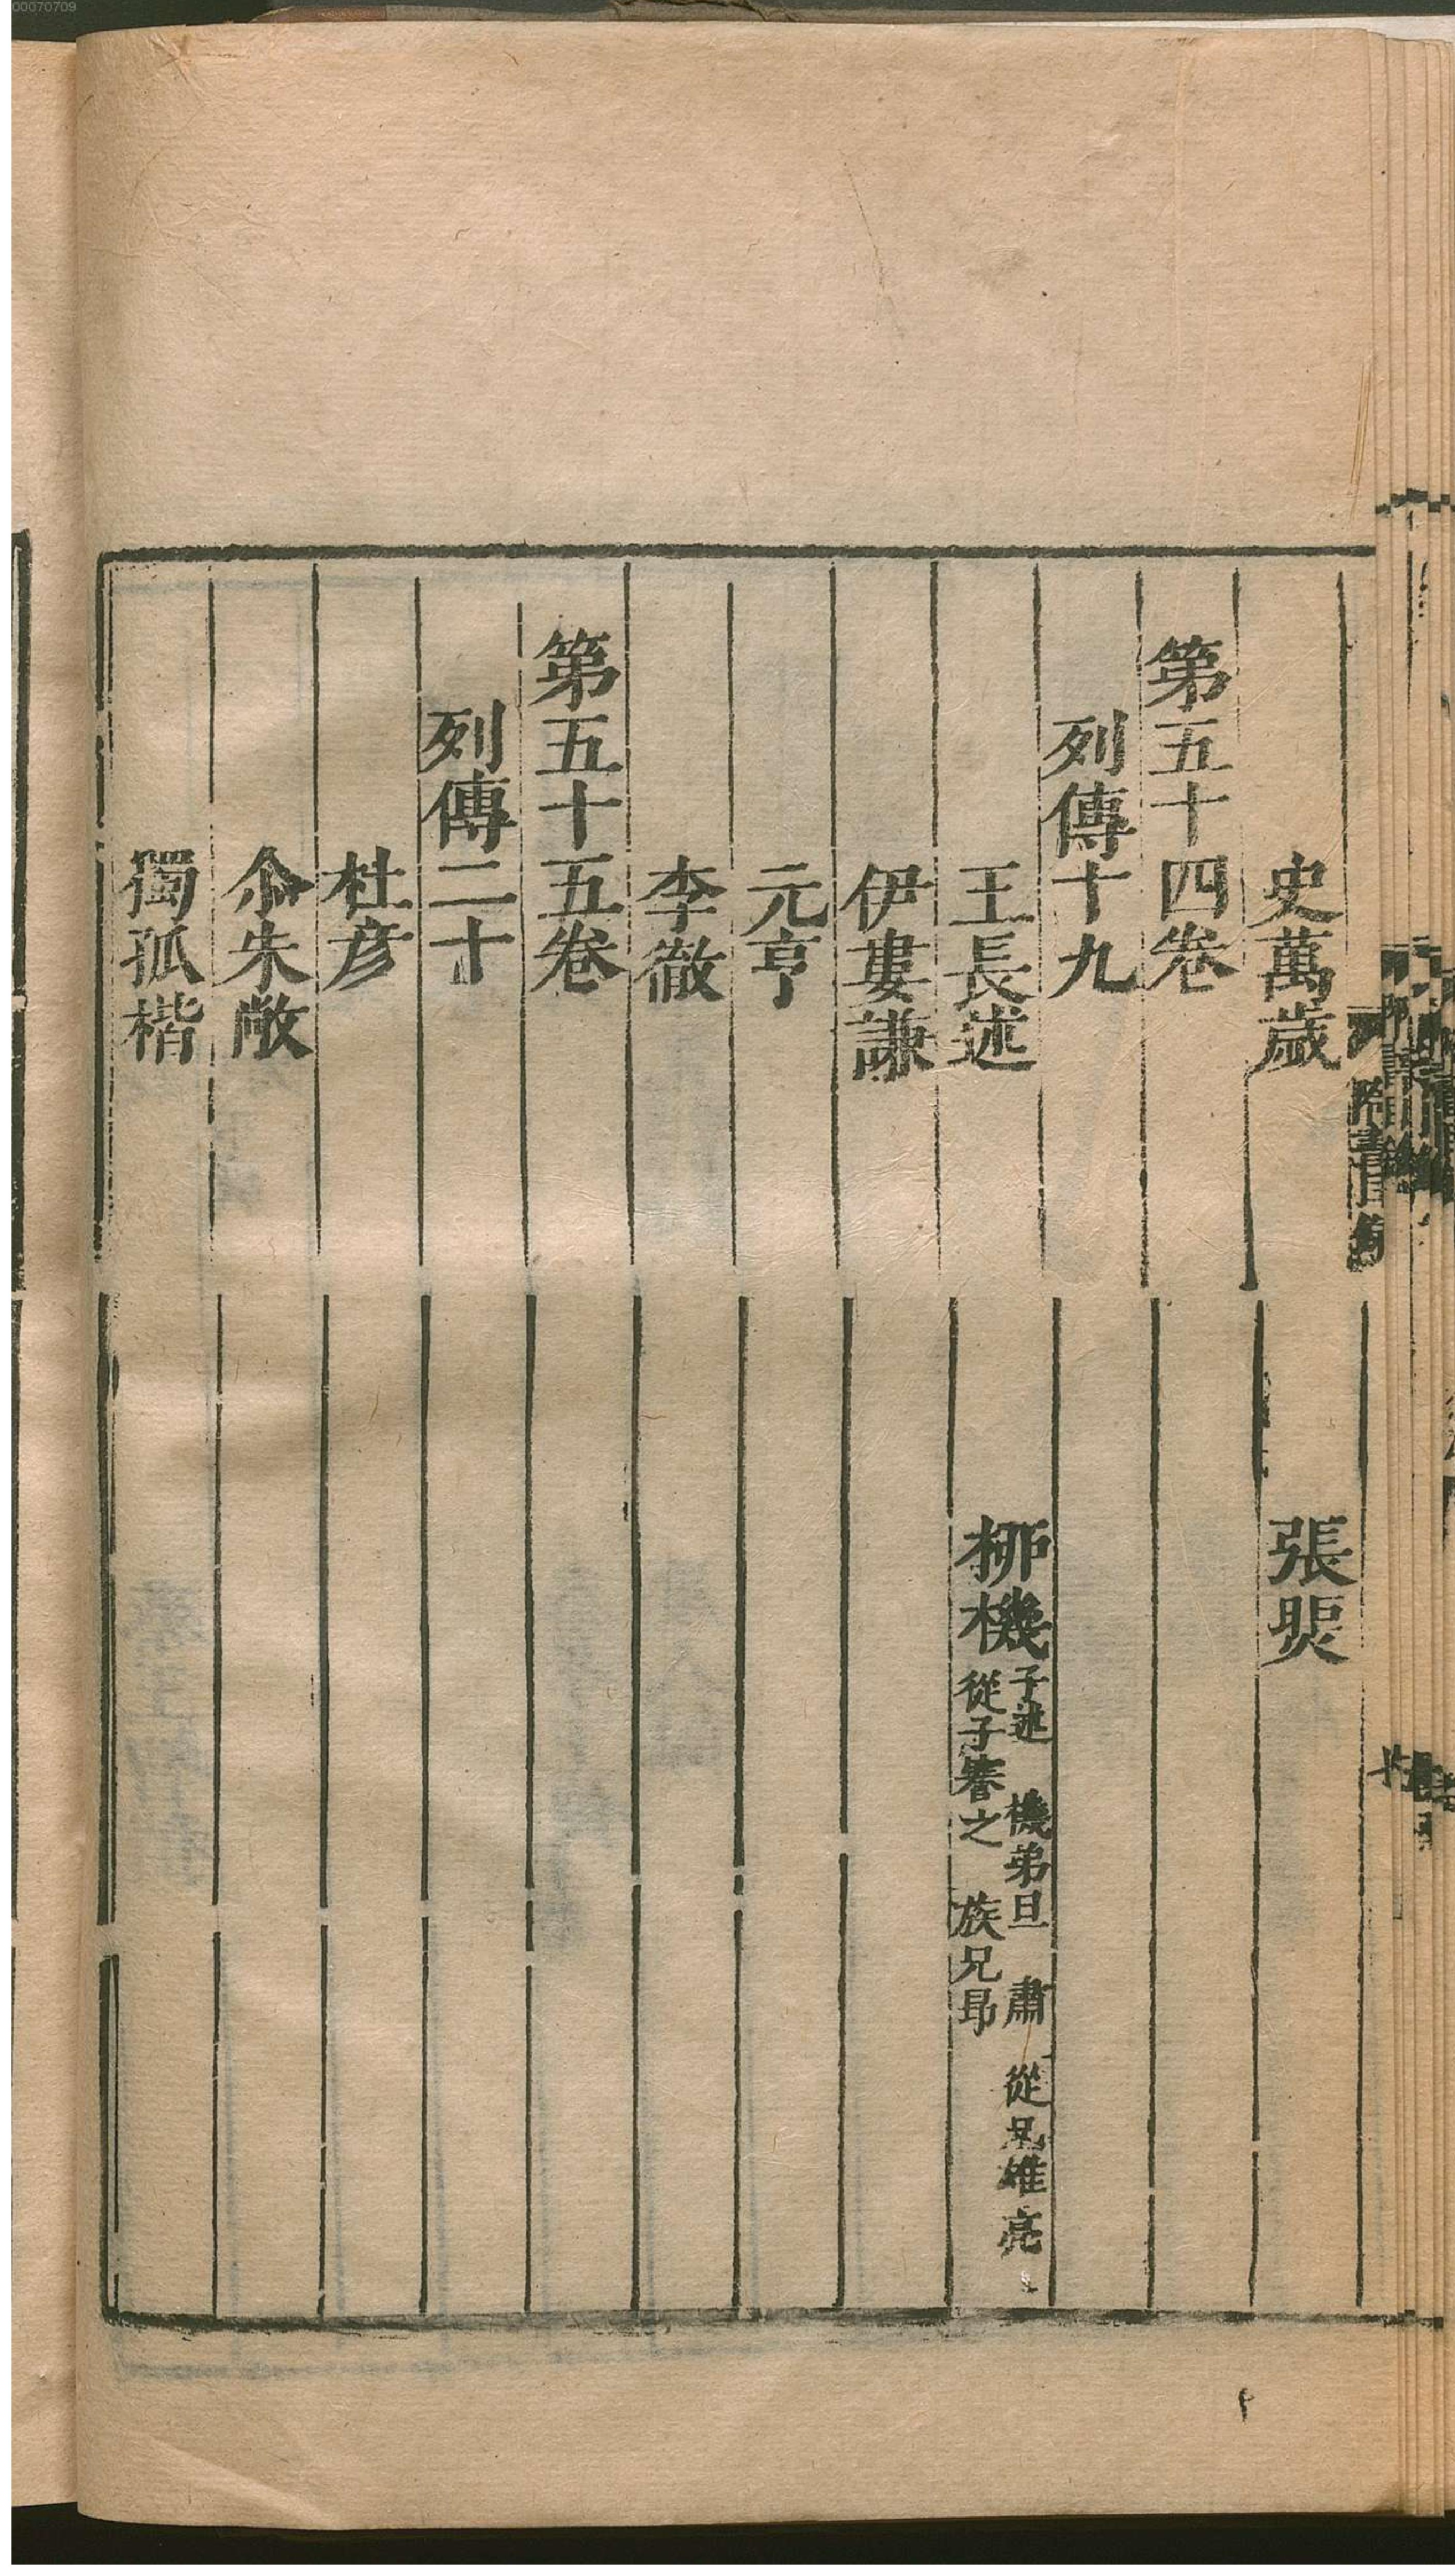 00070709
史萬歲　張煚
第五十四卷
列傳十九
王長述　柳機 子述　機弟旦　肅　從兄雄亮
從子謇之　族兄昂
伊婁謙
元亨
李徹
第五十五卷
列傳二十
杜彦
尒朱敞
獨孤楷
隋書目錄